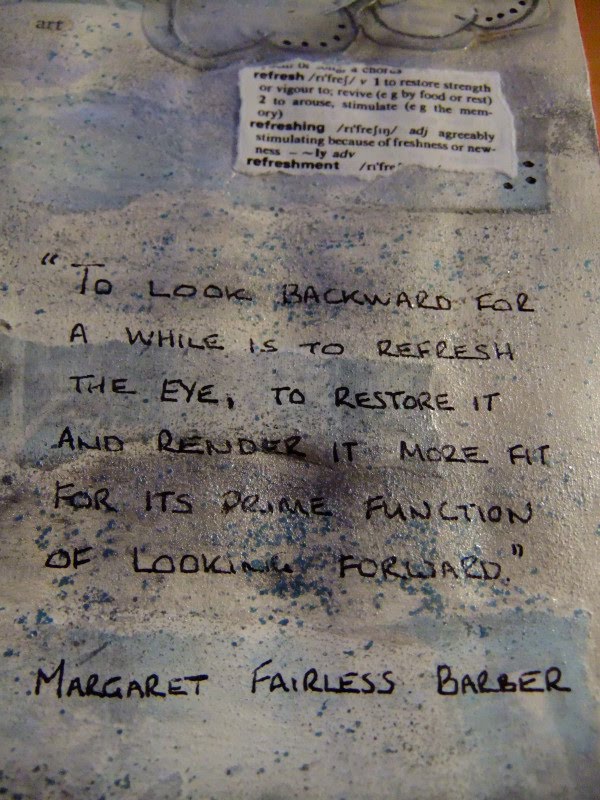 art
refresh /rɪˈfreʃ/ v 1 to restore strength
or vigour to; revive (e g by food or rest)
2 to arouse, stimulate (e g the mem-
ory)
refreshing /rɪˈfreʃɪŋ/ adj agreeably
stimulating because of freshness or new-
ness – ~ly adv
refreshment /rɪˈfre
“To LOOK BACKWARD FOR
A WHILE IS TO REFRESH
THE EYE, TO RESTORE IT
AND RENDER IT MORE FIT
FOR ITS PRIME FUNCTION
OF LOOKING FORWARD.”
MARGARET FAIRLESS BARBER